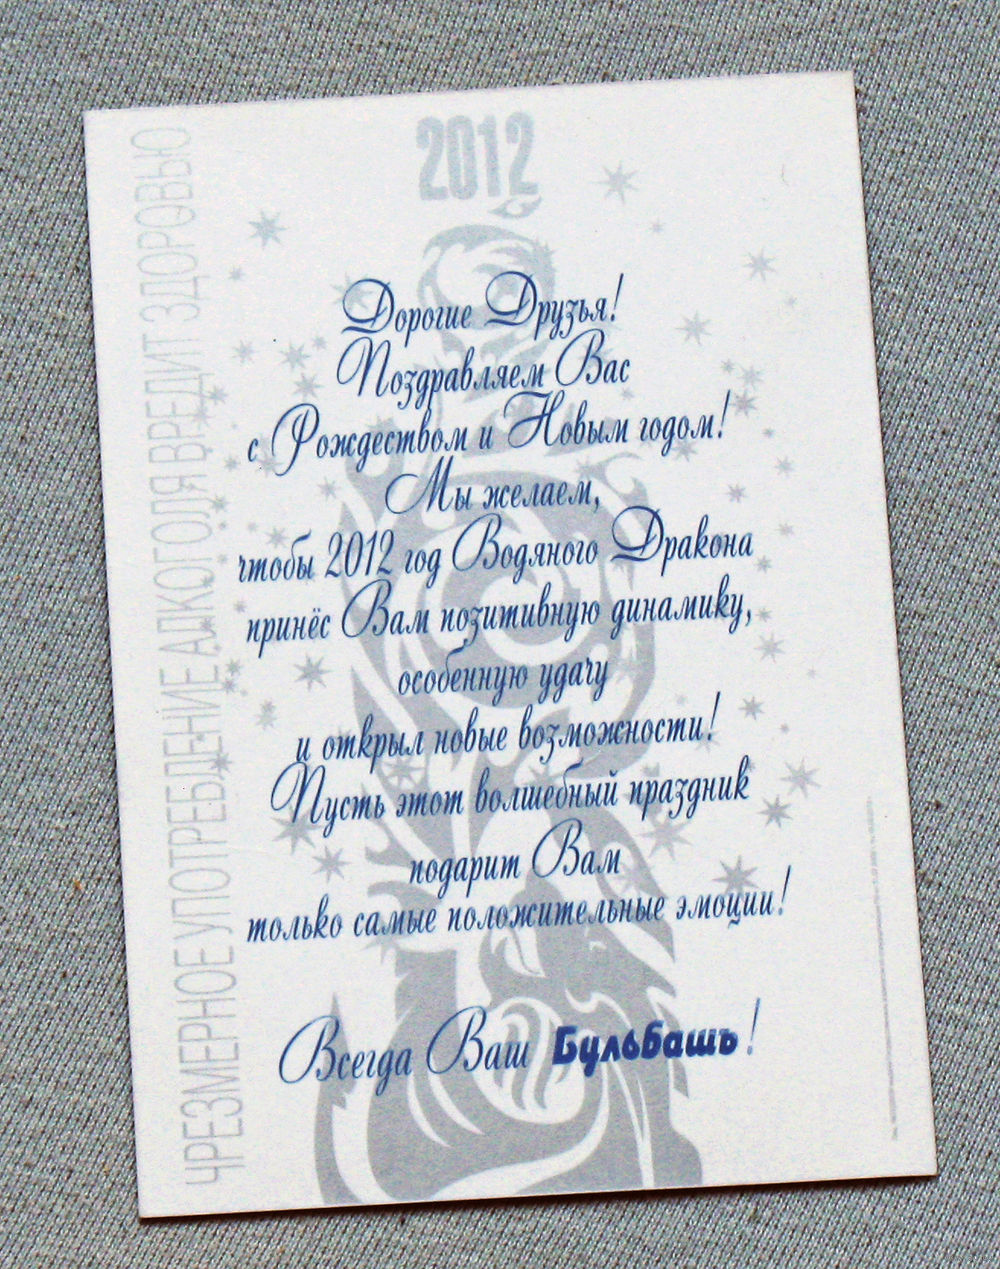 2012
Дорогие Друзья!
Поздравляем Вас
с Рождеством и Новым годом!
Мы желаем,
чтобы 2012 год Водяного Дракона
принёс Вам позитивную динамику,
особенную удачу
и открыл новые возможности!
Пусть этот волшебный праздник
подарит Вам
только самые положительные эмоции!
Всегда Ваш Бульбашъ!
ЧРЕЗМЕРНОЕ УПОТРЕБЛЕНИЕ АЛКОГОЛЯ ВРЕДИТ ЗДОРОВЬЮ